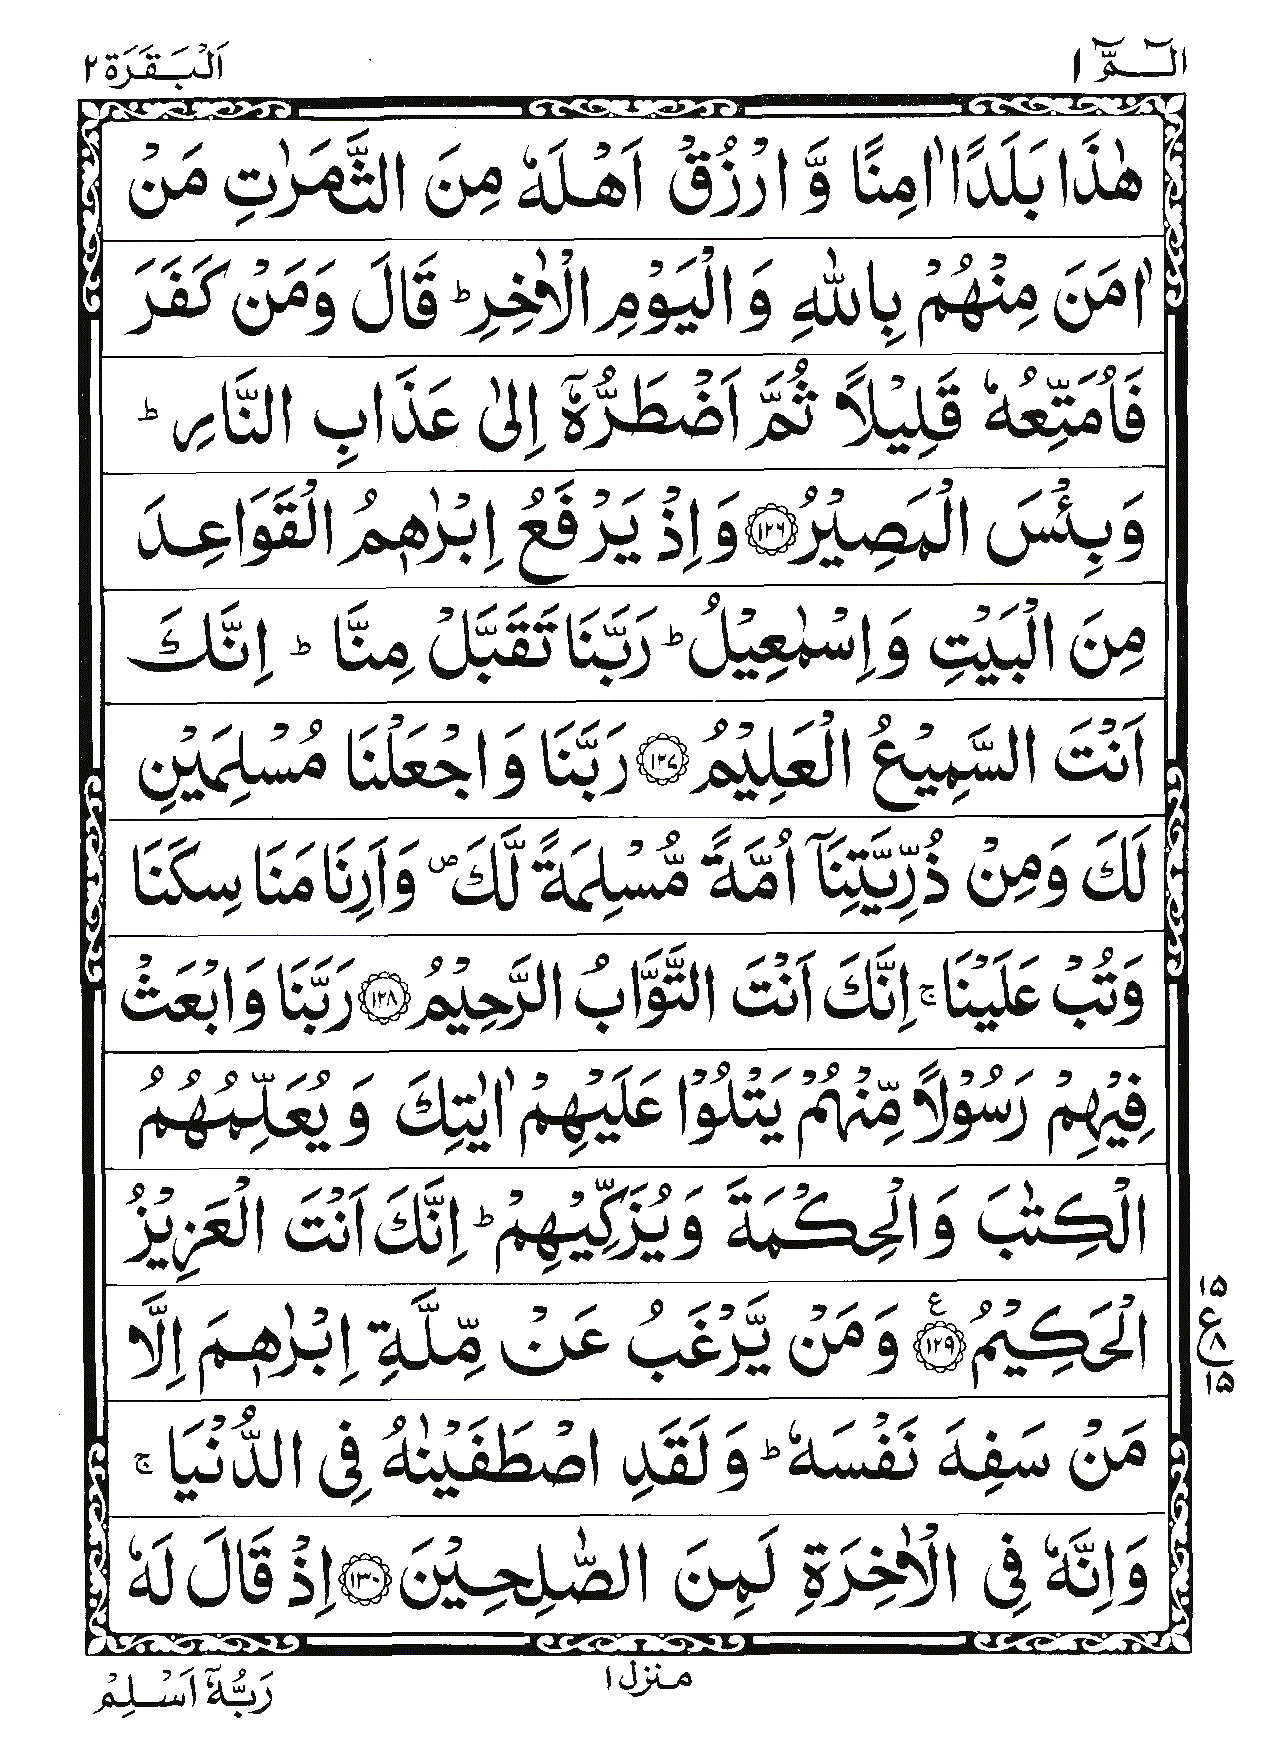 الٓمّٓ ۱
اَلْبَقَرَة ۲
هٰذَا بَلَدًا اٰمِنًا وَّ ارْزُقْ اَهْلَهٗ مِنَ الثَّمَرٰتِ مَنْ
اٰمَنَ مِنْهُمْ بِاللّٰهِ وَ الْيَوْمِ الْاٰخِرِ ؕ قَالَ وَمَنْ كَفَرَ
فَاُمَتِّعُهٗ قَلِيْلًا ثُمَّ اَضْطَرُّهٗۤ اِلٰى عَذَابِ النَّارِ ؕ
وَبِئْسَ الْمَصِيْرُ ﴿۱۲۶﴾ وَ اِذْ يَرْفَعُ اِبْرٰهٖمُ الْقَوَاعِدَ
مِنَ الْبَيْتِ وَ اِسْمٰعِيْلُ ؕ رَبَّنَا تَقَبَّلْ مِنَّا ؕ اِنَّكَ
اَنْتَ السَّمِيْعُ الْعَلِيْمُ ﴿۱۲۷﴾ رَبَّنَا وَ اجْعَلْنَا مُسْلِمَيْنِ
لَكَ وَمِنْ ذُرِّيَّتِنَاۤ اُمَّةً مُّسْلِمَةً لَّكَ ۪ وَاَرِنَا مَنَاسِكَنَا
وَتُبْ عَلَيْنَا ۚ اِنَّكَ اَنْتَ التَّوَّابُ الرَّحِيْمُ ﴿۱۲۸﴾ رَبَّنَا وَ ابْعَثْ
فِيْهِمْ رَسُوْلًا مِّنْهُمْ يَتْلُوْا عَلَيْهِمْ اٰيٰتِكَ وَ يُعَلِّمُهُمُ
الْكِتٰبَ وَ الْحِكْمَةَ وَ يُزَكِّيْهِمْ ؕ اِنَّكَ اَنْتَ الْعَزِيْزُ
الْحَكِيْمُ ﴿۱۲۹﴾ ع وَ مَنْ يَّرْغَبُ عَنْ مِّلَّةِ اِبْرٰهٖمَ اِلَّا
۱۵
ع ۸
۱۵
مَنْ سَفِهَ نَفْسَهٗ ؕ وَ لَقَدِ اصْطَفَيْنٰهُ فِي الدُّنْيَا ۚ
وَاِنَّهٗ فِي الْاٰخِرَةِ لَمِنَ الصّٰلِحِيْنَ ﴿۱۳۰﴾ اِذْ قَالَ لَهٗ
منزل ۱
رَبُّهٗۤ اَسْلِمْ